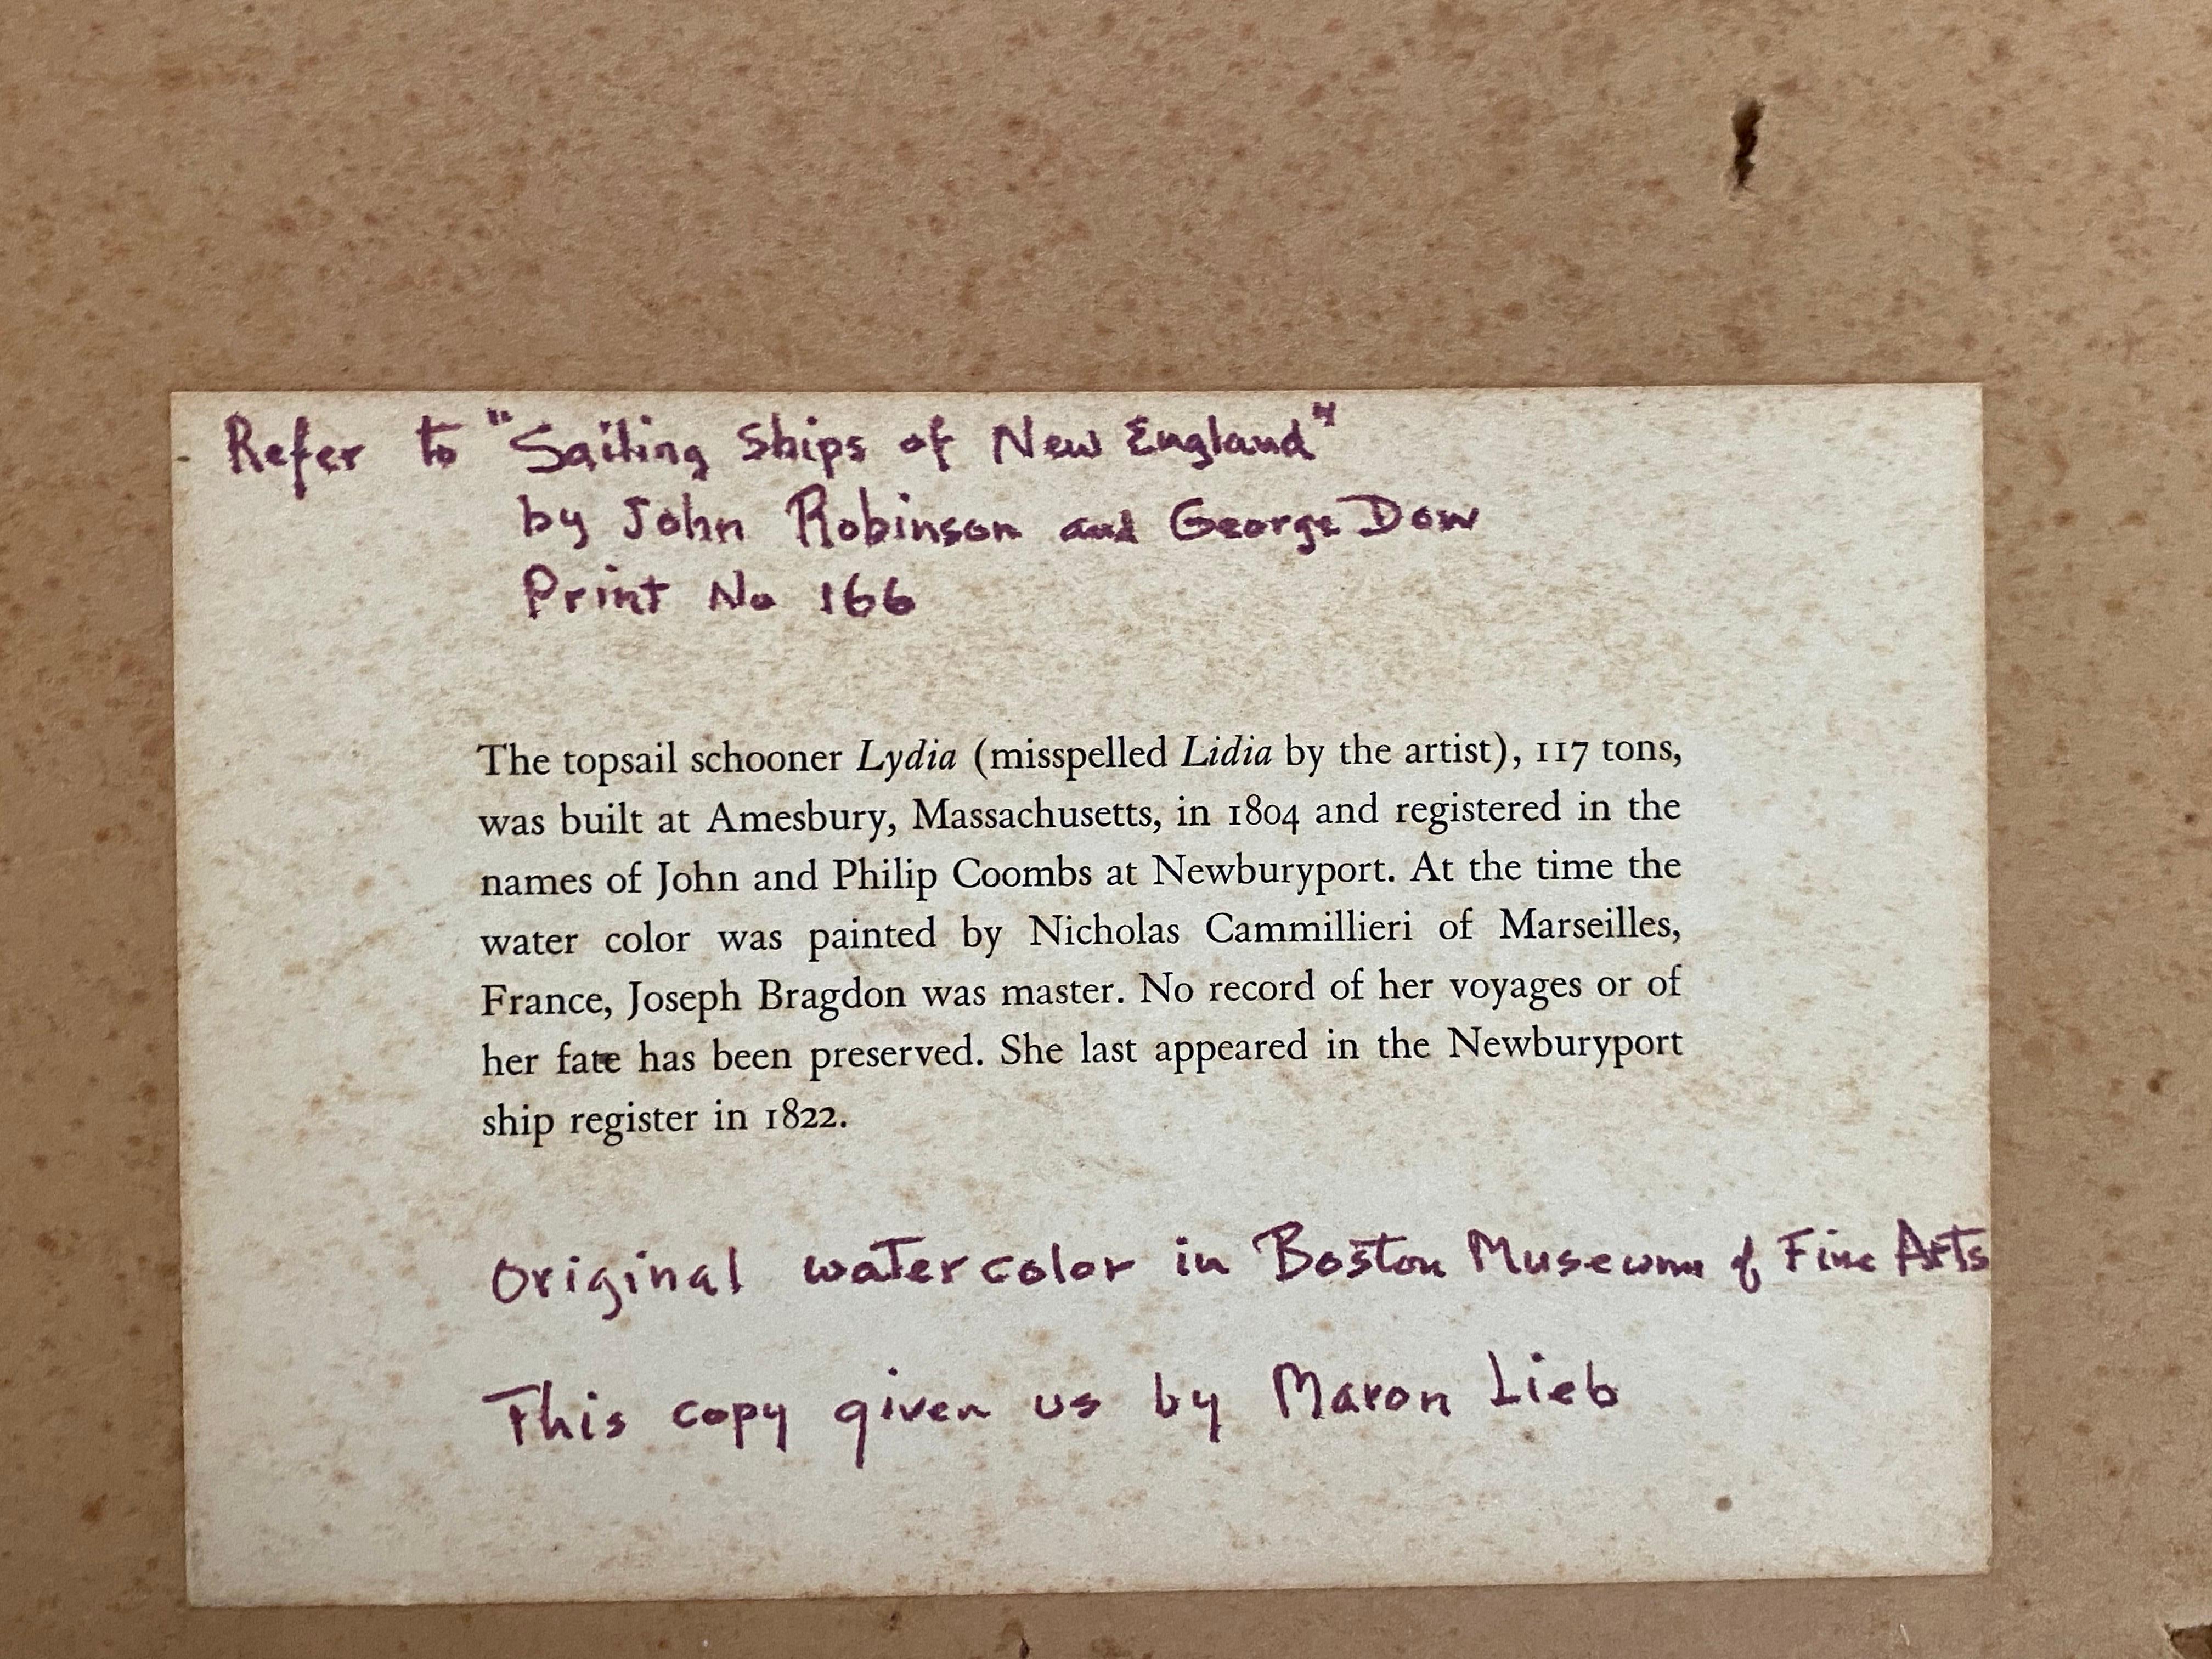 Refer to "Sailing Ships of New England"
by John Robinson and George Dow
Print No 166
The topsail schooner Lydia (misspelled Lidia by the artist), 117 tons,
was built at Amesbury, Massachusetts, in 1804 and registered in the
names of John and Philip Coombs at Newburyport. At the time the
water color was painted by Nicholas Cammillieri of Marseilles,
France, Joseph Bragdon was master. No record of her voyages or of
her fate has been preserved. She last appeared in the Newburyport
ship register in 1822.
Original watercolor in Boston Museum of Fine Arts
This copy given us by Maron Lieb